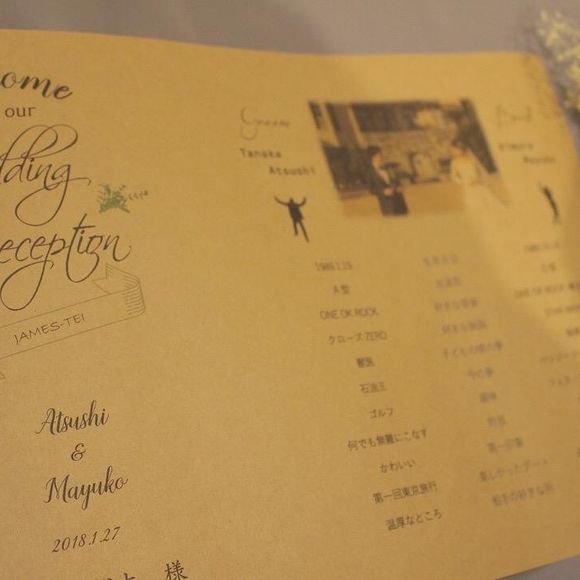 ome
our
dding
eception
JAMES-TEI
Atsushi
&
Mayuko
2018.1.27
様
Groom
Tanaka
Atsushi
1989.1.25
A型
ONE OK ROCK
クローズZERO
獣医
石油王
ゴルフ
何でも無難にこなす
かわいい
第一回東京旅行
温厚なところ
生年月日
血液型
好きな音楽
好きな映画
子どもの頃の夢
今の夢
趣味
特技
第一印象
楽しかったデート
相手の好きな所
Mayuko